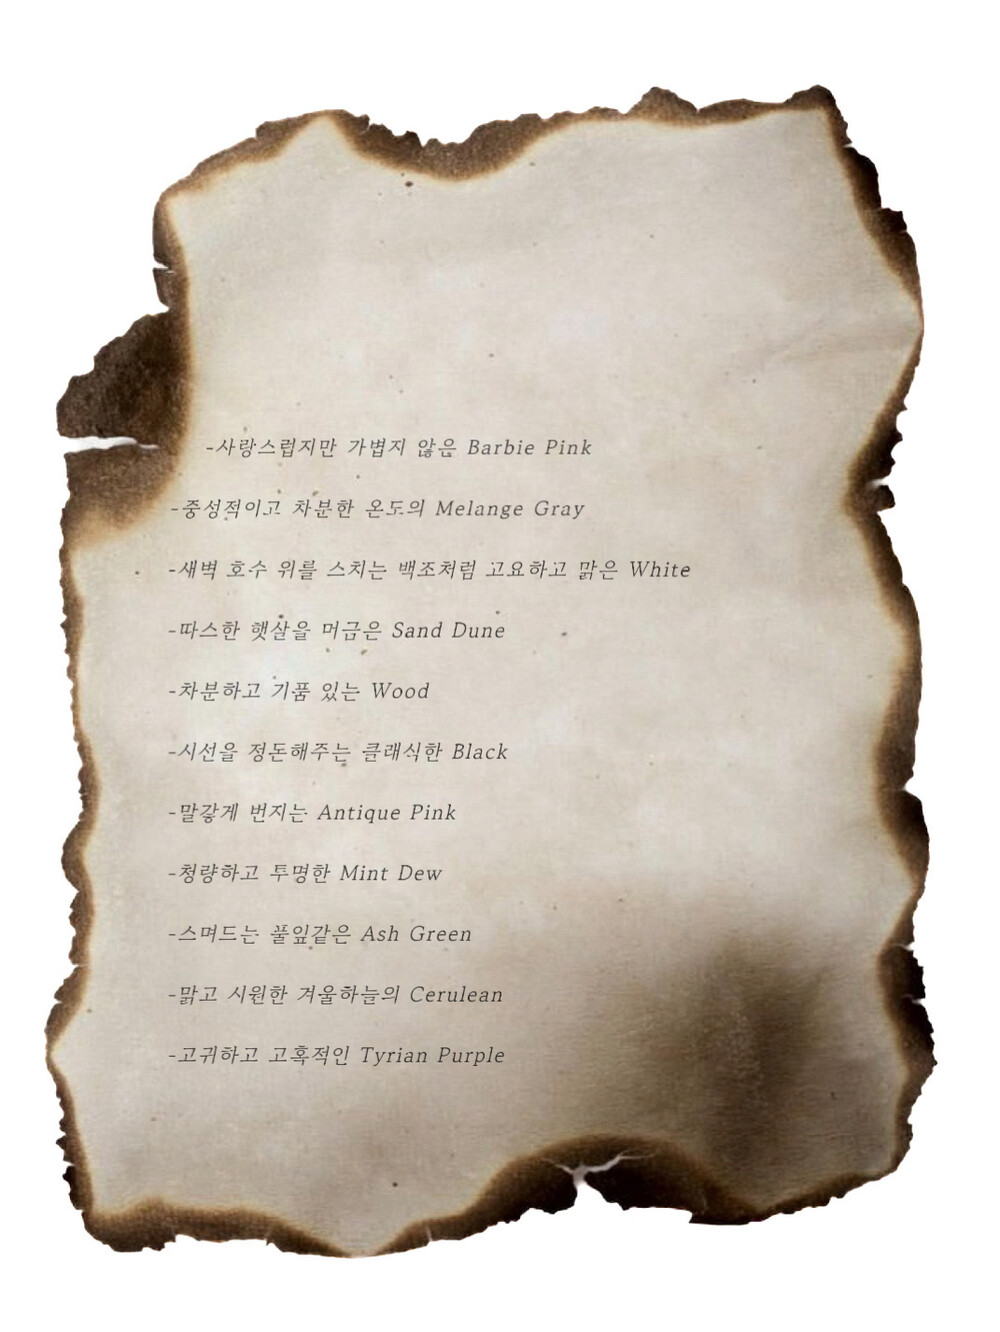 -사랑스럽지만 가볍지 않은 Barbie Pink
-중성적이고 차분한 온도의 Melange Gray
-새벽 호수 위를 스치는 백조처럼 고요하고 맑은 White
-따스한 햇살을 머금은 Sand Dune
-차분하고 기품 있는 Wood
-시선을 정돈해주는 클래식한 Black
-말갛게 번지는 Antique Pink
-청량하고 투명한 Mint Dew
-스며드는 풀잎같은 Ash Green
-맑고 시원한 겨울하늘의 Cerulean
-고귀하고 고혹적인 Tyrian Purple